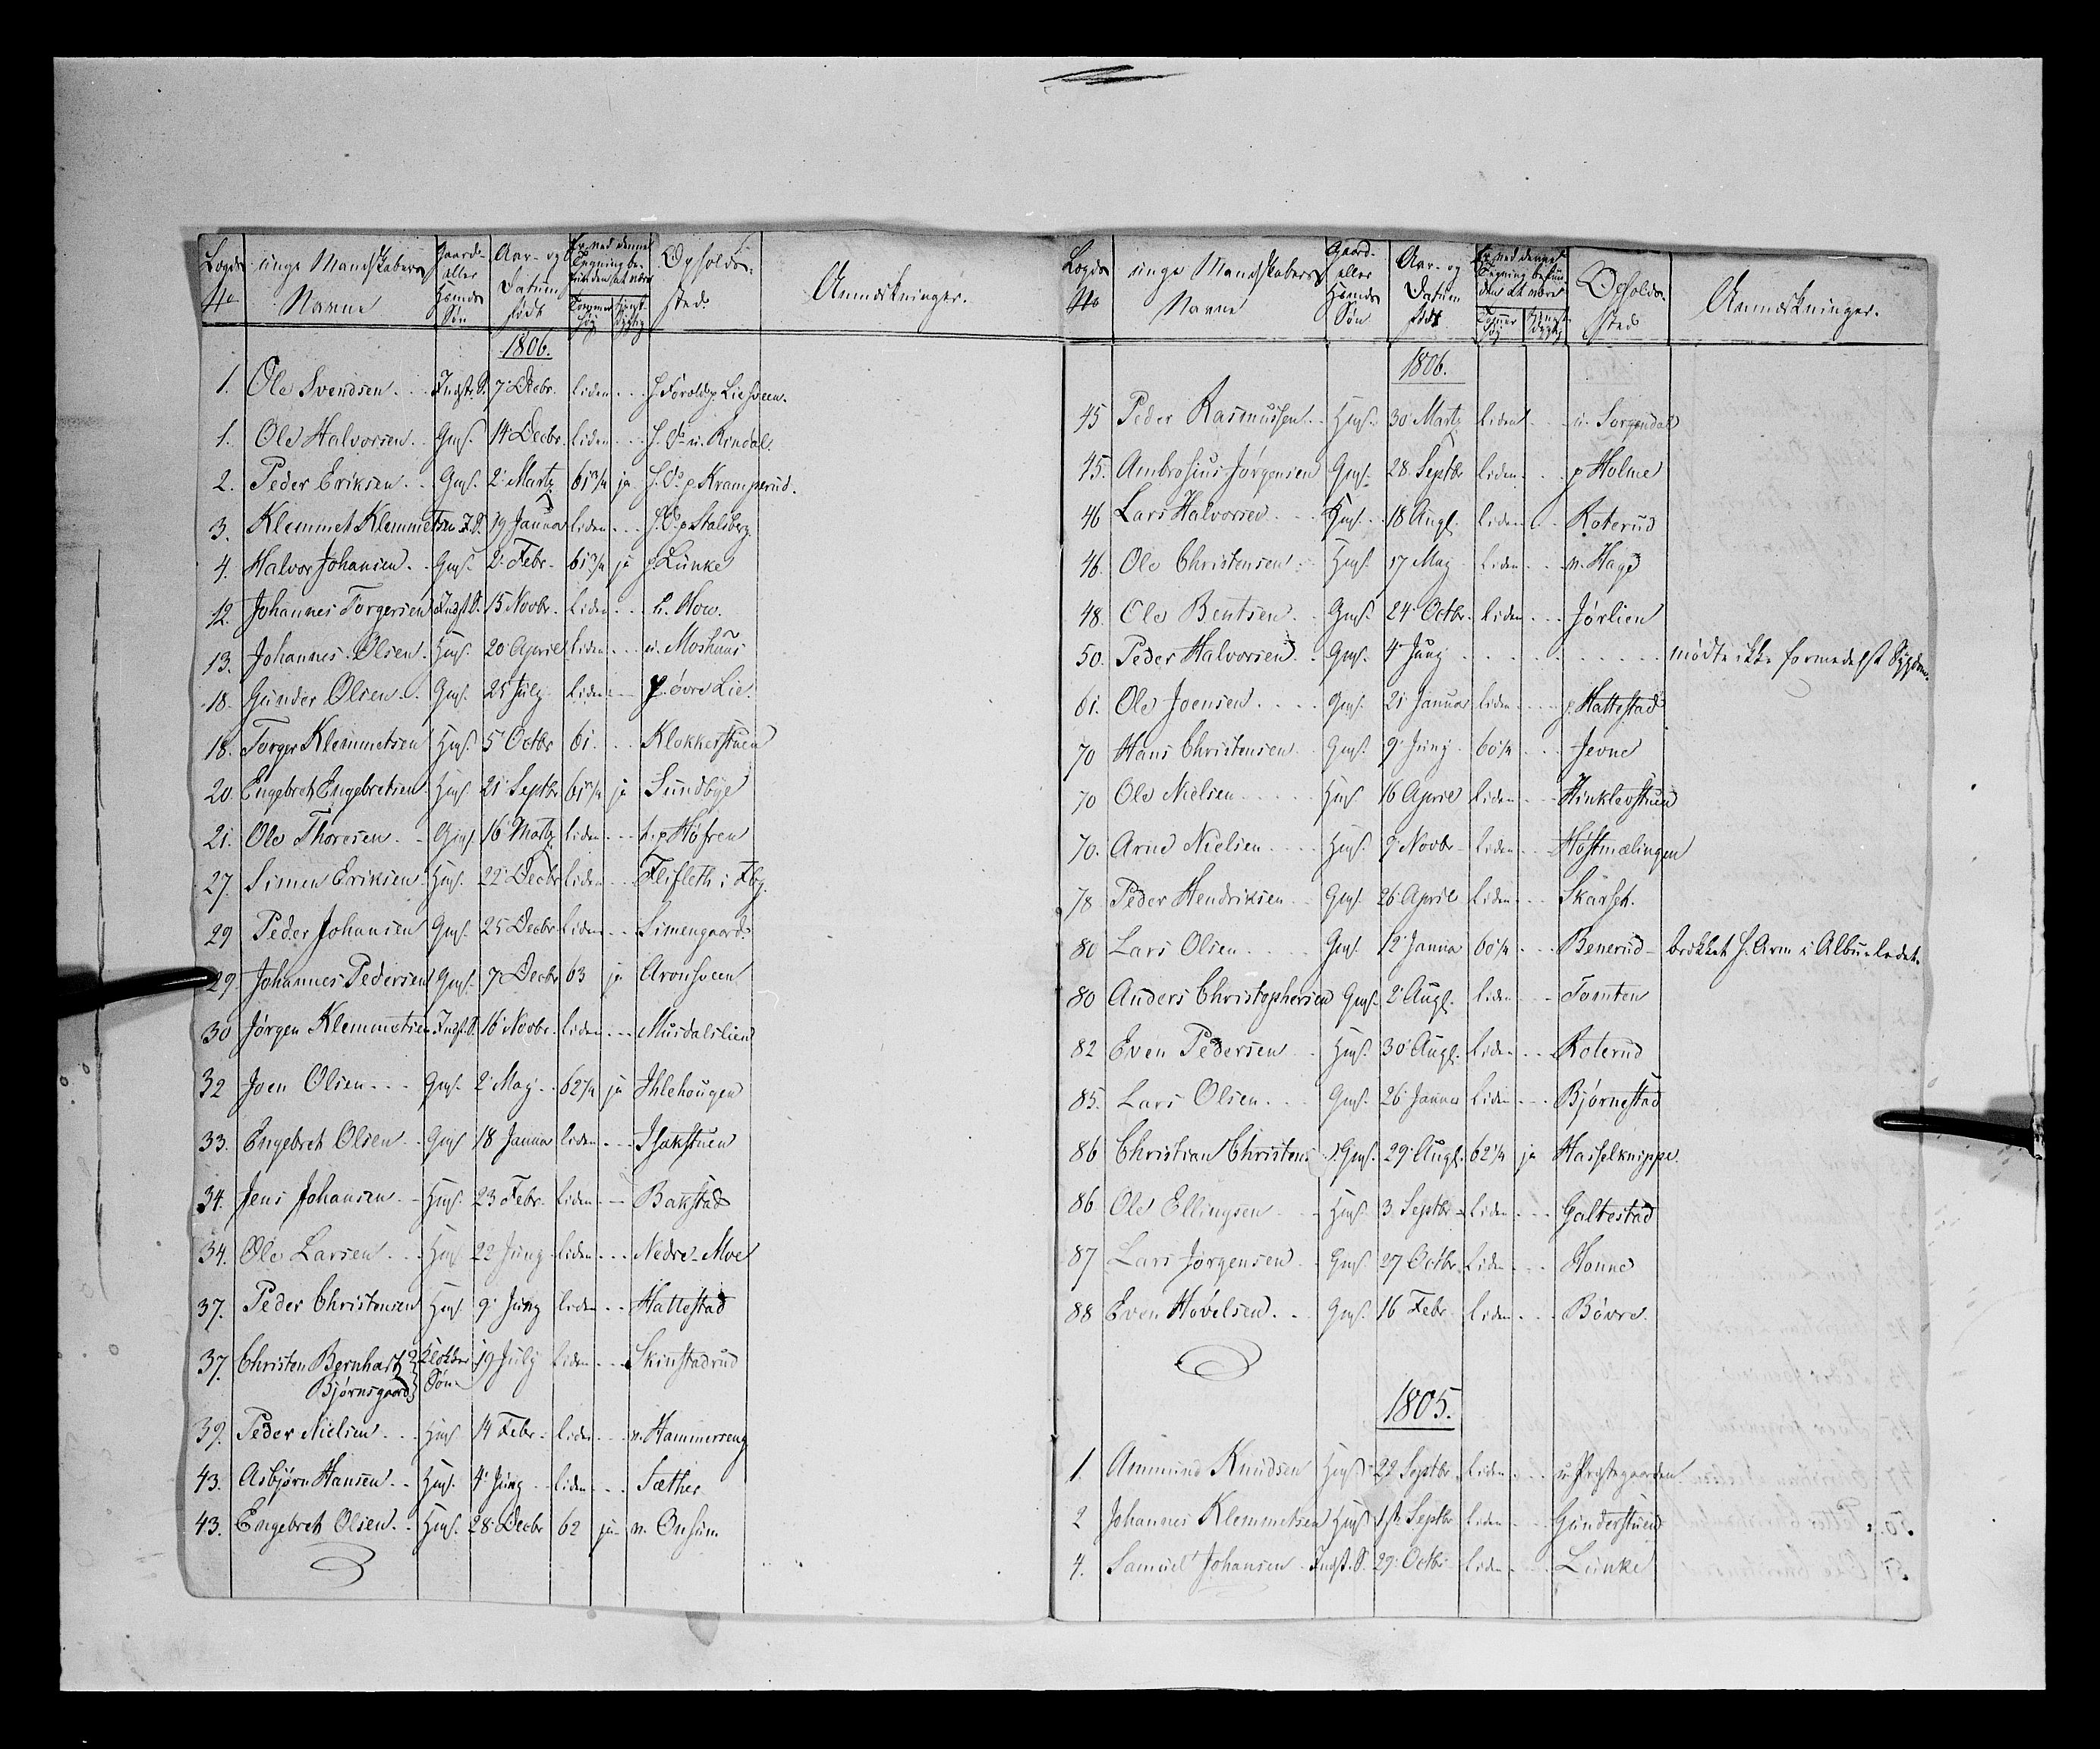 Lægds No | unge Mandskabers Navne | Gaard- eller Huusmds Søn | Aar- og Datum født | Er ved denne Tegning befunden at være Tommer høj | Tienst dygtig | Opholds-sted | Anmærkninger.
1806.
1. Ole Svendsen . . Indst. S. 7 Decbr. liden . . . h. Forældre p Liesveen.
1. Ole Halvorsen . . Gms. 14 Decbr. liden . . . h. Do u. Rindal.
2. Peder Eriksen . . Gms. 2 Martz 61 3/4 ja h. Do p Kramperud.
3. Klemmet Klemmetsen I. S. 19 Janua liden . . . h. Do p Stalsberg
4. Halvor Johansen . . Gms. 2 Febr. 61 3/4 ja p Lunke
12. Johannes Torgersen Indst. S. 15 Novbr. liden . . . h. How.
13. Johannes Olsen . Hms. 20 April liden . . . u. Moshuus
18. Gunder Olsen . . Gms. 25 July liden . . . p. øvre Lie.
18. Torger Klemmetsen Hms. 5 Octbr 61. . . Klokkerstuen
20. Engebret Engebretsen Hms. 21 Septbr 61 1/4 ja Sundbye
21. Ole Thoresen . . Gms. 16 Martz liden . . . h. p Høfren
27. Simen Eriksen Hms. 22 Decbr liden . . Flifleth i Fbg.
29 Peder Johansen Gms. 25 Decbr liden . . . Simengaard.
29. Johannes Pedersen Gms. 7 Decbr 63 ja Aronsveen
30 Jørgen Klemmetsen Indst. S. 16 Novbr. liden . . . Musdalslien
32 Joen Olsen . . . Gms. 2 May . . 62 1/4 ja Ihlehougen
33. Engebret Olsen . . Gms 18 Janua liden . . . Isakstuen
34. Jens Johansen . . Hms. 23 Febr. liden . . . Bakstad
34. Ole Larsen . . . Hms 22 Juny liden . . . Nedre Moe
37. Peder Christensen Hms 9 Juny liden . . . Hattestad
37. Christen Bernhart Bjørnsgaard Klokker Søn 19 July liden . . . Skinstadrud
39. Peder Nielsen . . . Hms 14 Febr. liden . . . n. Hammerseng
43. Asbjørn Hansen . . Hms. 4 Juny . . liden . . . Sæther
43. Engebret Olsen . . Hms. 28 Decbr 62 ja n. Onsum
Lægds No | unge Mandskabers Navne | Gaard- eller Huusmds Søn | Aar- og Datum født | Er ved denne Tegning befunden at være Tommer høj | Tienst dygtig | Opholds-sted | Anmærkninger.
1806.
45 Peder Rasmussen . . Hms. 30 Martz liden . . . u. Sorgendal
45. Ambrosius Jørgensen Gms. 28 Septbr liden . . . p Holme
46 Lars Halvorsen . . . Hms. . . 18 Augs. liden . . . Roterud
46. Ole Christensen . . Hms. 17 May liden . . . n. Hage
48. Ole Bentsen . . Gms. 24 Octbr. liden . . . Jørlien
50. Peder Halvorsen . . Gms. 4 Juny . . . . . . . mødte ikke formedelst Sygdom.
61. Ole Joensen . . . . Gms. 21 Januar liden . . . p. Hattestad
70 Hans Christensen . . Gms. 9 Juny 60 1/4 . . . Jevne
70 Ole Nielsen . . . . . Hms 16 April liden . . . Hinklevstuen
70. Arne Nielsen . . . . Hms. 9 Novbr. liden . . . Høstmælingen
78 Peder Hendriksen . . Gms. 26 April liden . . . Skarset.
80 Lars Olsen . . . . . Gms. 12 Janua 60 1/4 . . . Benerud - brækket h. Arm i Albueledet.
80 Anders Christophersen Gms. 2 Augs. liden . . . Tomten
82 Even Pedersen . . Hms. 30 Augs. liden . . . Roterud
85. Lars Olsen . . . Gms. 26 Janua liden . . . Bjørnestad
86 Christian Christens. Gms. 29 Augs. 62 1/4 ja Hasselknippe.
86 Ole Ellingsen . . . Hms. 3 Septbr. liden . . . Galtestad
87 Lars Jørgensen . . Gms. 27 Octbr. liden . . . Honne
88 Even Høvelsen . . Gms. 16 Febr. liden . . . Bövre.
1805.
1. Ammund Knudsen Hms 22 Septbr. liden . . . u. Præstegaarden.
2 Johannes Klemmetsen Hms 1ste Septbr liden . . . Gunderstuen
4. Samuel Johansen Indst. S. 29 Octbr. liden . . . Lunke